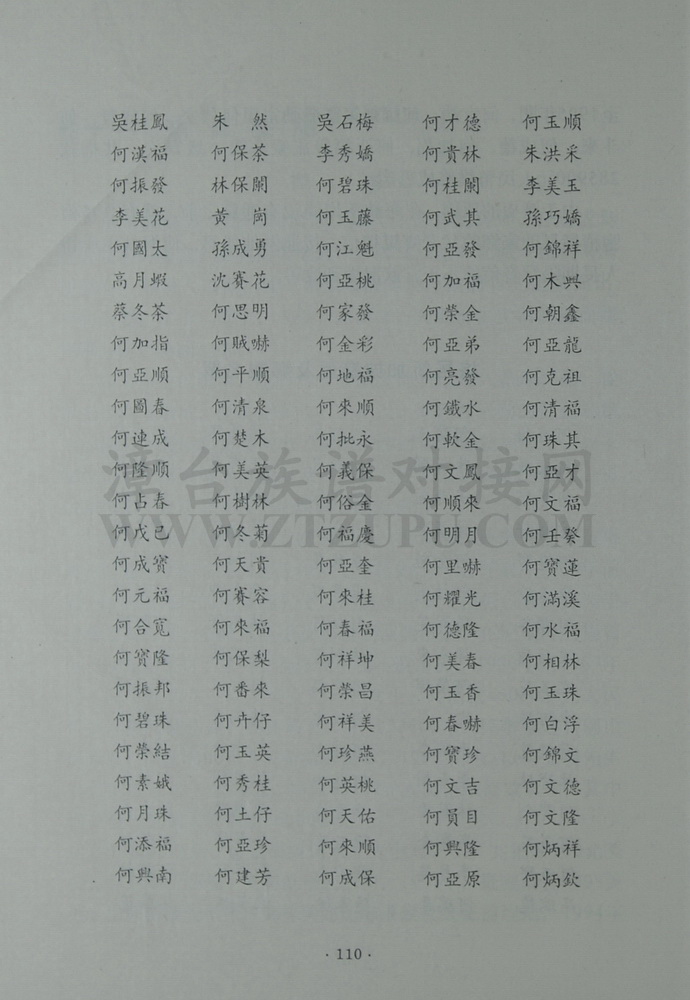 吳桂鳳 朱然 吳石梅 何才德 何玉順
何漢福 何保荼 李秀嬌 何貴林 朱洪采
何振發 林保關 何碧珠 何桂關 李美玉
李美花 黃崗 何玉藤 何武其 孫巧嬌
何國太 孫成勇 何江魁 何亞發 何錦祥
高月蝦 沈賽花 何亞桃 何加福 何木興
蔡冬茶 何思明 何家發 何榮金 何朝鑫
何加指 何賊嚇 何金彩 何亞弟 何亞龍
何亞順 何平順 何地福 何亮發 何克祖
何圖春 何清泉 何來順 何鐵水 何清福
何連成 何楚木 何批永 何軟金 何珠其
何隆順 何美英 何義保 何文鳳 何亞才
何占春 何樹林 何俗金 何順來 何文福
何戊己 何冬菊 何福慶 何明月 何壬癸
何成寶 何天貴 何亞奎 何里嚇 何寶蓮
何元福 何賽容 何來桂 何耀光 何滿溪
何合寬 何來福 何春福 何德隆 何水福
何寶隆 何保梨 何祥坤 何美春 何相林
何振邦 何番來 何榮昌 何玉香 何玉珠
何碧珠 何卉仔 何祥美 何春嚇 何白浮
何榮結 何玉英 何珍燕 何寶珍 何錦文
何素娥 何秀桂 何英桃 何文吉 何文德
何月珠 何土仔 何天佑 何員目 何文隆
何添福 何亞珍 何來順 何興隆 何炳祥
何興南 何建芳 何成保 何亞原 何炳欽
漳台族谱对接网
WWW.ZTZUPU.COM
·110·